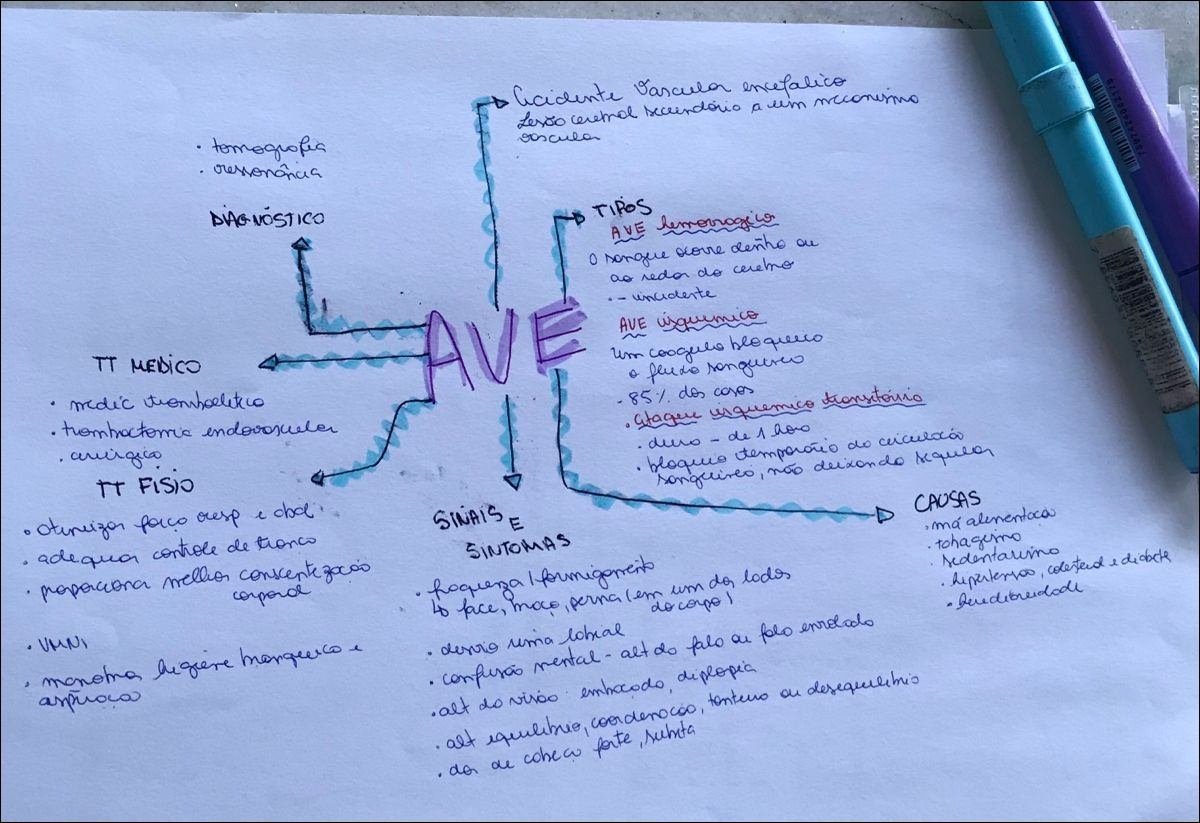 Acidente Vascular encefalico
Lesão cerebral secundário a um mecanismo
vascular
• tomografia
• ressonância
DIAGNÓSTICO
TIPOS
AVE hemorragico
O sangue ocorre dentro ou
ao redor do cerebro
• - incidente
AVE isquemico
Um coagulo bloqueia
o fluxo sanguineo
- 85% dos casos
• Ataque isquemico transitório
• dura - de 1 hora
• bloqueio temporário da circulação
sanguinea, não deixando sequelas
AVE
TT MEDICO
• medic trombolitico
• trombectomia endovascular
• cirurgico
TT FISIO
• otimizar força resp e abd
• adequar controle de tronco
• proporciona melhor conscientização
corporal
• VMNI
• manobras higiene bronquica e
aspiração
SINAIS E
SINTOMAS
• fraqueza / formigamento
↳ face, braço, perna (em um dos lados
do corpo)
• desvio rima labial
• confusão mental - alt da fala ou fala enrolada
• alt da visão: embaçada, diplopia
• alt equilibrio, coordenação, tontura ou desequilibrio
• dor de cabeça forte, subita
CAUSAS
• má alimentação
• tabagismo
• sedentarismo
• hipertensão, colesterol e diabete
• hereditariedade